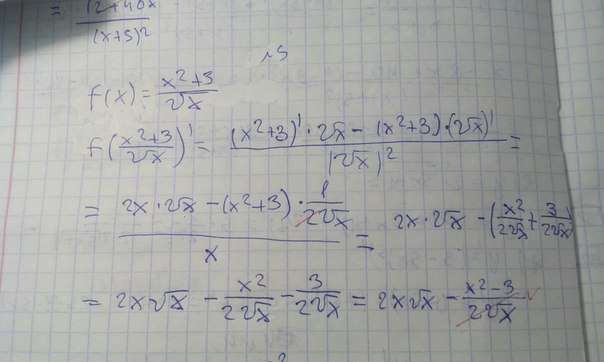 = (2+40x)/(x+3)²
√3
f(x) = (x²+3)/√x
f((x²+3)/√x)' = ((x²+3)'·√x − (x²+3)·(√x)')/(√x)² =
= (2x·√x − (x²+3)·1/(2√x))/x = 2x·√x − (x²/(2√x) + 3/(2√x))
= 2x√x − x²/(2√x) − 3/(2√x) = 2x√x − (x²−3)/(2√x)